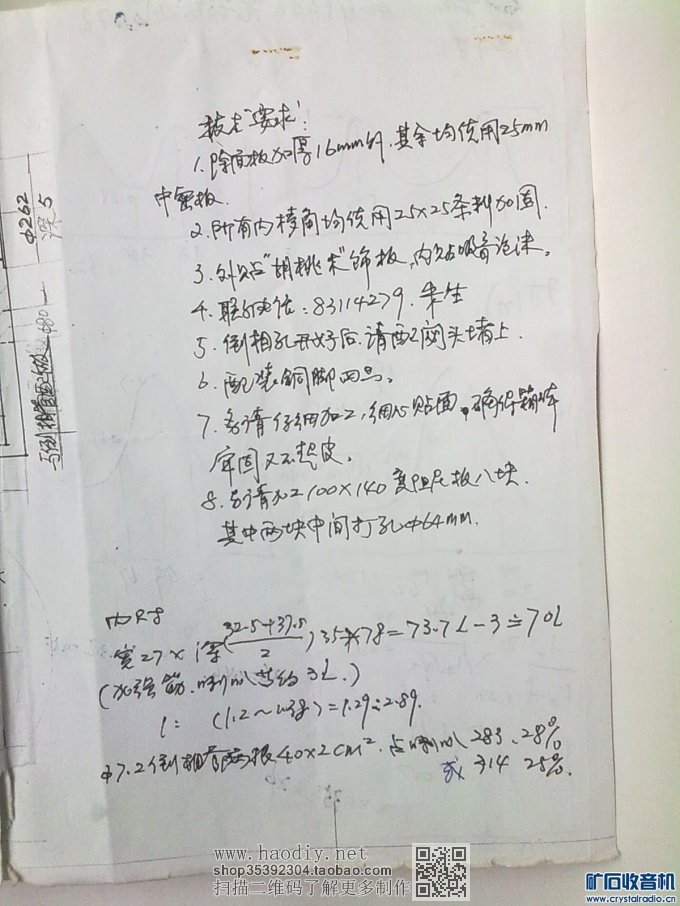 技术要求:
1.除面板加厚16mm外,其余均使用25mm
中密板.
2.所有内棱角均使用25×25条料加固.
3.外贴"胡桃木"饰板,内贴吸音泡沫。
4.联系电话:83114279.朱生
5.倒相孔开好后.请配网头堵上.
6.配装铜脚四只。
7.务请仔细加工,细心贴面,确保箱体
牢固又不起皮。
8.另请加工100×140高阻尼板八块.
其中两块中间打孔φ64mm.
φ262
深5
内尺寸
宽27×深(32.5+37.5/2)35×78=73.7L-3≐70L
(加强筋.喇叭共约3L.)
1: (1.2~)=1.29:2.89.
φ7.2倒相管两根40×2cm².占喇叭283.28%
或314 25%.
www.haodiy.net
shop35392304.taobao.com
扫描二维码了解更多制作
矿石收音机
www.crystalradio.cn